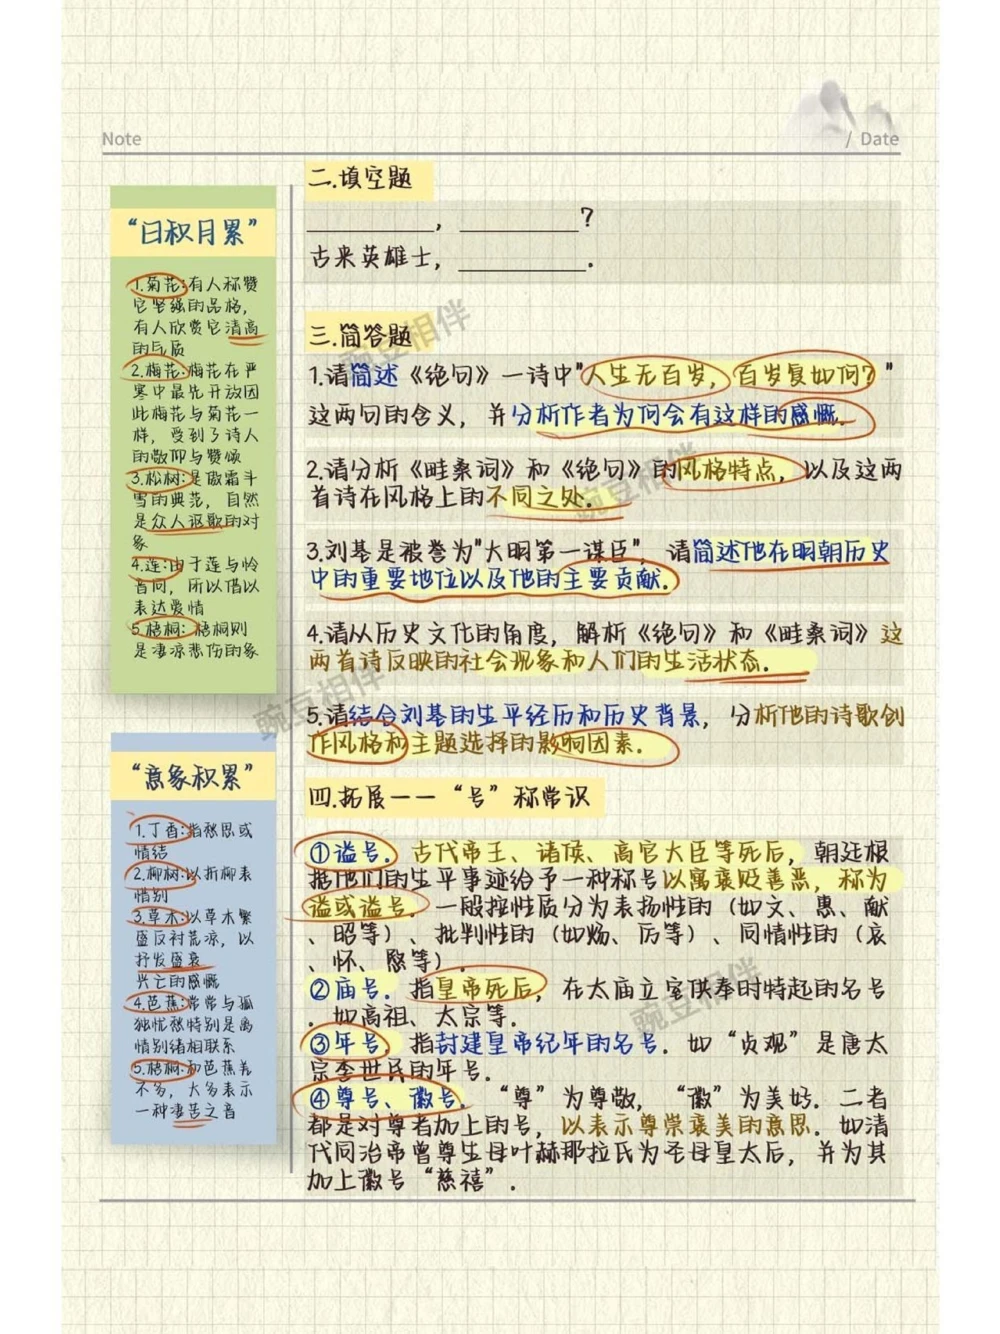 Note
/ Date
“日积月累”
1.菊花:有人称赞
它坚强的品格,
有人欣赏它清高
的气质
2.梅花:梅花在严
寒中最先开放因
此梅花与菊花一
样, 受到了诗人
的敬仰与赞颂
3.松树:是傲霜斗
雪的典范, 自然
是众人讴歌的对
象
4.莲:由于莲与怜
音同, 所以借以
表达爱情
5.梧桐: 梧桐则
是凄凉悲伤的象
“意象积累”
1.丁香:指愁思或
情结
2.柳树:以折柳表
惜别
3.草木:以草木繁
盛反衬荒凉, 以
抒发盛衰
兴亡的感慨
4.芭蕉:常常与孤
独忧愁特别是离
情别绪相联系
5.梧桐:和芭蕉差
不多, 大多表示
一种凄苦之音
二.填空题
__________, __________?
古来英雄士, __________.
三.简答题
1.请简述《绝句》一诗中"人生无百岁, 百岁复如何? "
这两句的含义, 并分析作者为何会有这样的感慨.
2.请分析《畦桑词》和《绝句》的风格特点, 以及这两
首诗在风格上的不同之处.
3.刘基是被誉为"大明第一谋臣", 请简述他在明朝历史
中的重要地位以及他的主要贡献.
4.请从历史文化的角度, 解析《绝句》和《畦桑词》这
两首诗反映的社会现象和人们的生活状态.
5.请结合刘基的生平经历和历史背景, 分析他的诗歌创
作风格和主题选择的影响因素.
四.拓展——“号”称常识
①谥号. 古代帝王、诸侯、高官大臣等死后, 朝廷根
据他们的生平事迹给予一种称号以寓褒贬善恶, 称为
谥或谥号. 一般按性质分为表扬性的（如文、惠、献
、昭等）、批判性的（如炀、厉等）、同情性的（哀
、怀、愍等）.
②庙号. 指皇帝死后, 在太庙立室供奉时特起的名号
. 如高祖、太宗等.
③年号. 指封建皇帝纪年的名号. 如“贞观”是唐太
宗李世民的年号.
④尊号、徽号. “尊”为尊敬, “徽”为美好. 二者
都是对尊者加上的号, 以表示尊崇褒美的意思. 如清
代同治帝曾尊生母叶赫那拉氏为圣母皇太后, 并为其
加上徽号“慈禧”.
豌豆相伴
豌豆相伴
豌豆相伴
豌豆相伴